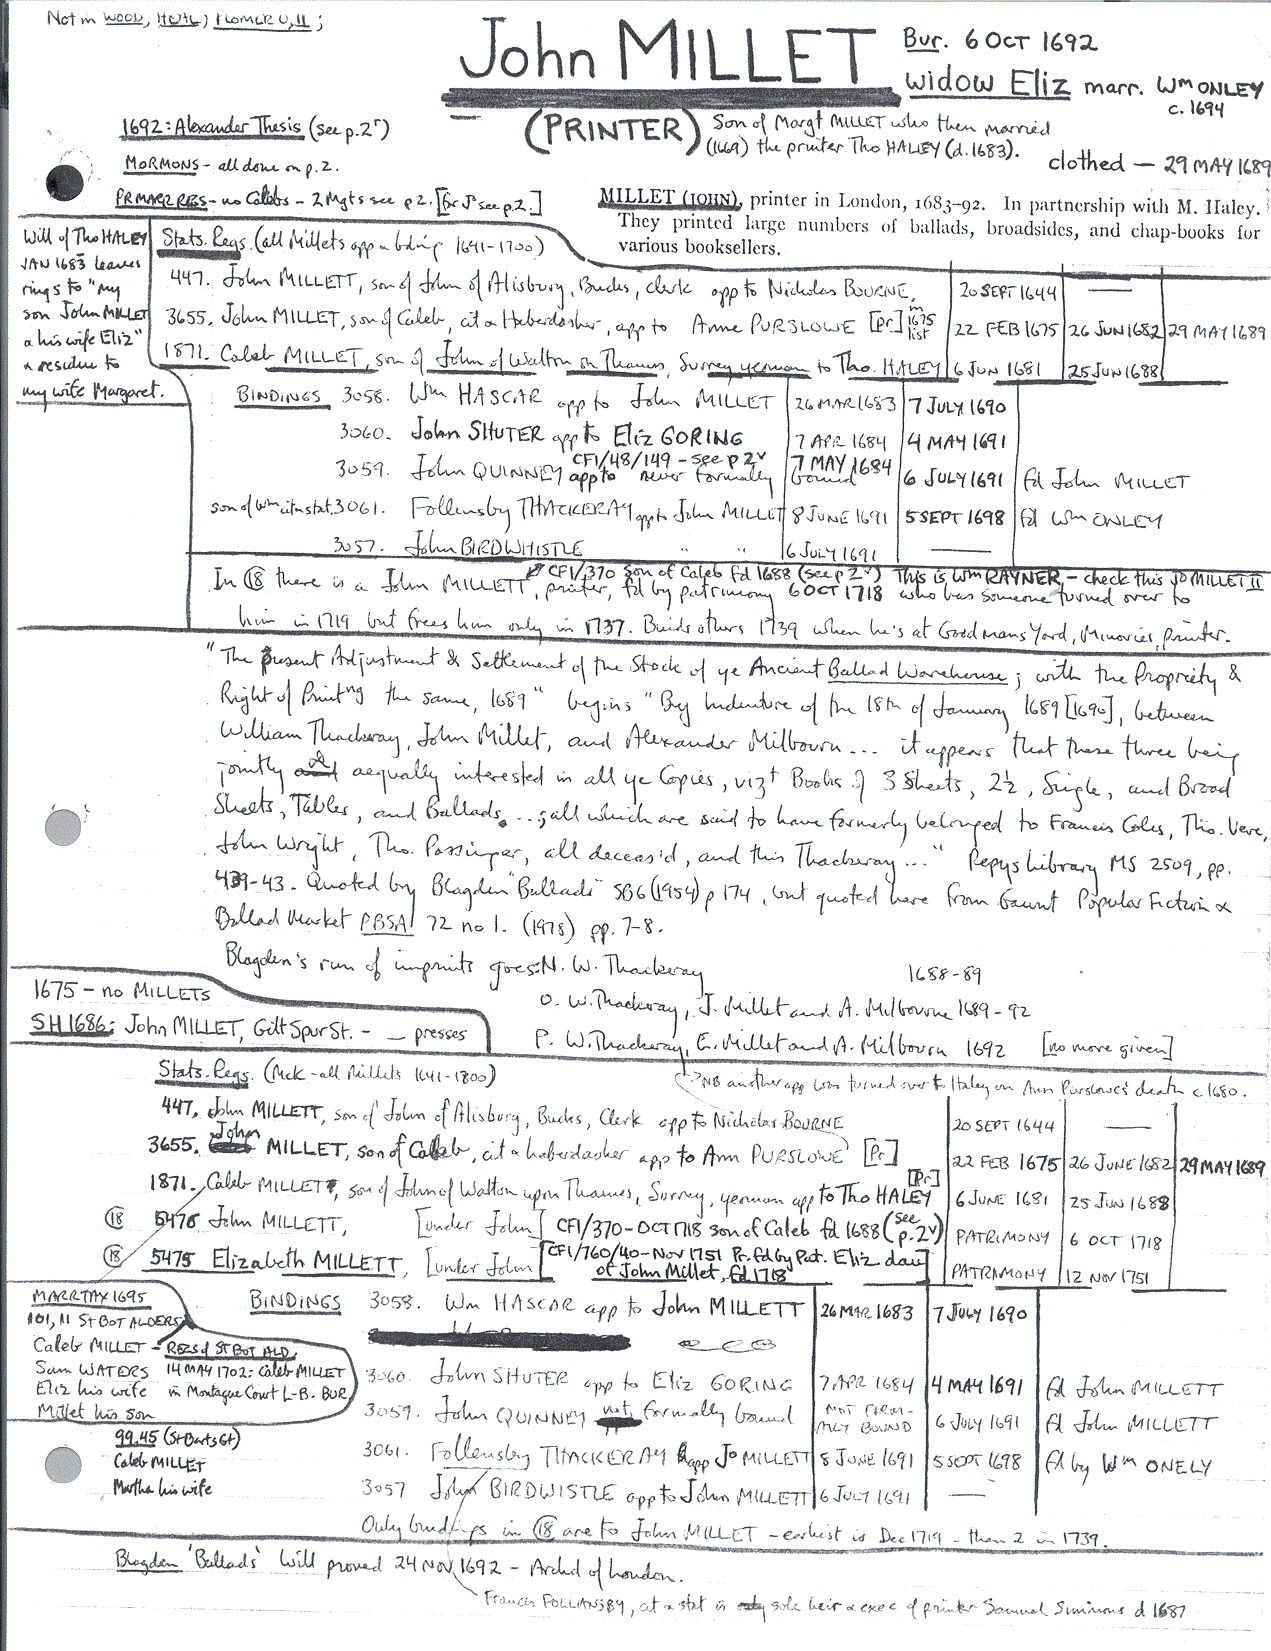 Not in WOOD, HOTL; PLOMER I, II;
John MILLET
Bur. 6 OCT 1692
widow Eliz marr. Wm ONLEY
c. 1694
(PRINTER)
Son of Margt MILLET who then married
(1669) the printer Tho HALEY (d. 1683).
clothed — 29 MAY 1689
1692: Alexander Thesis (see p. 2r)
MORMONS - all done on p. 2.
PR MARR REGS - no Calebs - 2 Mgts see p 2. [for Js see p. 2.]
MILLET (JOHN), printer in London, 1683-92. In partnership with M. Haley.
They printed large numbers of ballads, broadsides, and chap-books for
various booksellers.
Will of Tho HALEY
JAN 1683 leaves
rings to "my
son John MILLET
& his wife Eliz"
& residue to
my wife Margaret.
Stats. Regs. (all Millets app & bding 1641-1700)
447. John MILLETT, son of John of Alisbury, Bucks, clerk app to Nicholas BOURNE, 20 SEPT 1644 —
3655. John MILLET, son of Caleb, cit & Haberdasher, app to Anne PURSLOWE [Pr] in 1675 list 22 FEB 1675 26 JUN 1682 29 MAY 1689
1871. Caleb MILLET, son of John of Walton on Thames, Surrey yeoman to Tho. HALEY 6 JUN 1681 25 JUN 1688
BINDINGS 3058. Wm HASCAR app to John MILLET 26 MAR 1683 7 JULY 1690
3060. John SHUTER app to Eliz GORING 7 APR 1684 4 MAY 1691
CF1/48/149 - see p 2v 7 MAY 1684
3059. John QUINNEY app to never formally bound 6 JULY 1691 fd John MILLET
son of Wm cit & stat. 3061. Follensby THACKERAY app to John MILLET 8 JUNE 1691 5 SEPT 1698 fd Wm ONLEY
3057. John BIRDWHISTLE " " 6 JULY 1691 —
CF1/370 son of Caleb fd 1688 (see p 2v) This is Wm RAYNER, - check this Jo MILLET II
In 18 there is a John MILLETT, printer, fd by patrimony 6 OCT 1718 who has someone turned over to
him in 1719 but frees him only in 1737. Binds others 1739 when he's at Goodmans Yard, Minories, printer.
"The present Adjustment & Settlement of the Stock of ye Ancient Ballad Warehouse; with the Propriety &
Right of Printng the same, 1689" begins "By Indenture of the 18th of January 1689 [1690], between
William Thackeray, John Millet, and Alexander Milbourn ... it appears that these three being
jointly & aequally interested in all ye Copies, vizt Books of 3 Sheets, 2½, Single, and Broad
Sheets, Tables, and Ballads, ... ; all which are said to have formerly belonged to Francis Coles, Tho. Vere,
John Wright, Tho. Passinger, all deceas'd, and this Thackeray ..." Pepys Library MS 2509, pp.
439-43. Quoted by Blagden "Ballads" SB6 (1954) p 174, but quoted here from Gaunt Popular Fiction &
Ballad Market PBSA 72 no 1. (1978) pp. 7-8.
Blagden's run of imprints goes: N. W. Thackeray 1688-89
O. W. Thackeray, J. Millet and A. Milbourne 1689-92
P. W. Thackeray, E. Millet and A. Milbourn 1692 [no more given]
1675 - no MILLETS
SH 1686: John MILLET, Gilt Spur St. - — presses
NB another app was turned over to Haley on Ann Purslowe's death c 1680.
Stats. Regs. (McK - all Millets 1641-1800)
447. John MILLETT, son of John of Alisbury, Bucks, Clerk app to Nicholas BOURNE 20 SEPT 1644 —
3655. John MILLET, son of Caleb, cit & haberdasher app to Ann PURSLOWE [Pr] 22 FEB 1675 26 JUNE 1682 29 MAY 1689
1871. Caleb MILLET, son of John of Walton upon Thames, Surrey, yeoman app to Tho HALEY [Pr] 6 JUNE 1681 25 JUN 1688
18 5476 John MILLETT, [under John] CF1/370 - OCT 1718 son of Caleb fd 1688 (see p. 2v) PATRIMONY 6 OCT 1718
18 5475 Elizabeth MILLETT, [under John] [CF1/760/40 - Nov 1751 Pr. fd by Pat. Eliz dau of John Millet, fd 1718] PATRIMONY 12 NOV 1751
MARR TAX 1695
101, 11 St BOT ALDERS
Caleb MILLET - REGS of St BOT ALD,
Sam WATERS 14 MAY 1702: Caleb MILLET
Eliz his wife in Montague Court L-B. BUR
Millet his son
99.45 (St Barts Gt)
Caleb MILLET
Martha his wife
BINDINGS 3058. Wm HASCAR app to John MILLETT 26 MAR 1683 7 JULY 1690
3060. John SHUTER app to Eliz GORING 7 APR 1684 4 MAY 1691 fd John MILLETT
3059. John QUINNEY not formally bound NOT FORMALLY BOUND 6 JULY 1691 fd John MILLETT
3061. Follensby THACKERAY app Jo MILLETT 8 JUNE 1691 5 SEPT 1698 fd by Wm ONELY
3057 John BIRDWISTLE app to John MILLETT 6 JULY 1691 —
Only bindings in 18 are to John MILLET - earliest is Dec 1719 - then 2 in 1739.
Blagden 'Ballads' Will proved 24 NOV 1692 - Archd of London.
Francis FOLLIANSBY, cit & stat is sole heir & exec of printer Samuel Simmons d 1687